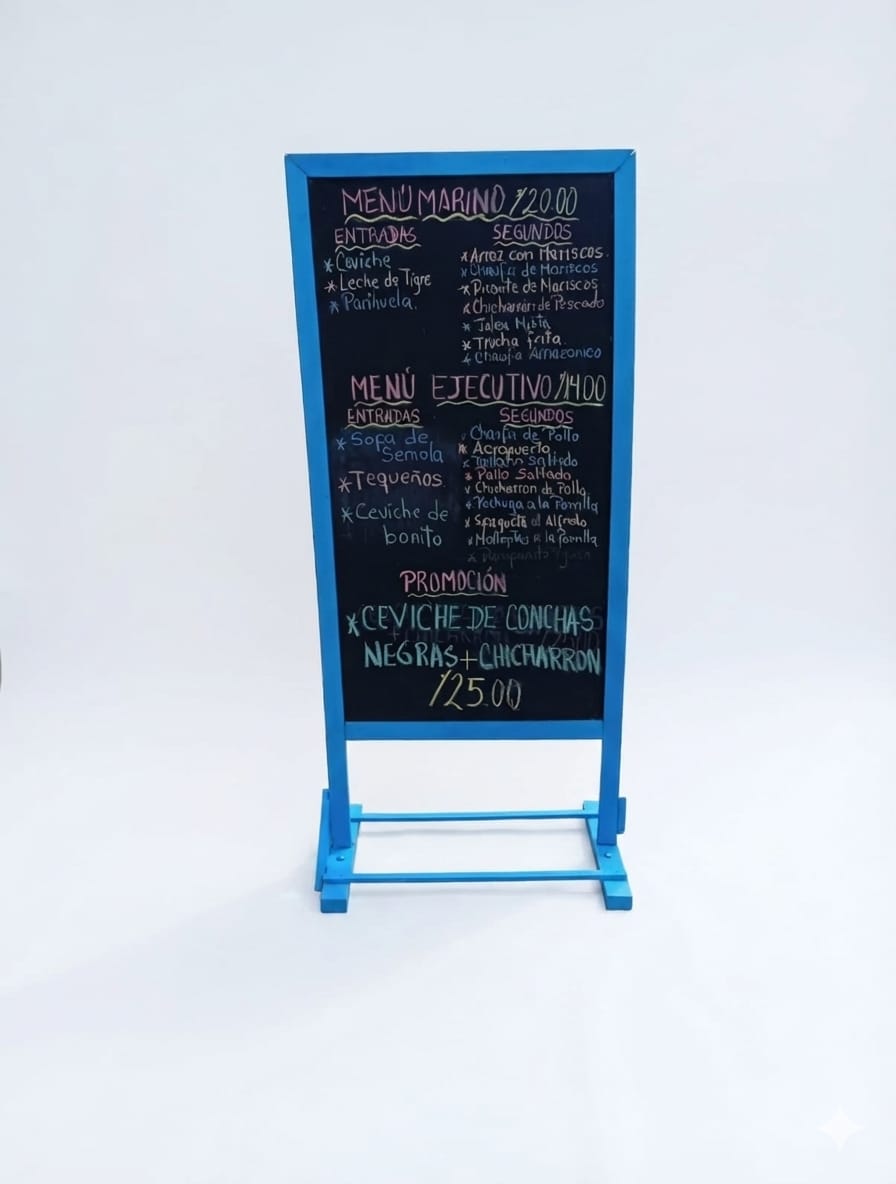 MENÚ MARINO /20.00
ENTRADAS
* Ceviche
* Leche de Tigre
* Parihuela.
SEGUNDOS
* Arroz con Mariscos.
* Chaufa de Mariscos
* Picante de Mariscos
* Chicharrón de Pescado
* Jalea Mixta
* Trucha frita.
* Chaufa Amazonico
MENÚ EJECUTIVO /14.00
ENTRADAS
* Sopa de
Semola
* Tequeños
* Ceviche de
bonito
SEGUNDOS
Chaufa de Pollo
* Aeropuerto
Saltado
* Pollo Saltado
Chicharron de Pollo
* Pechuga a la Parrilla
* al Alfredo
* a la Parrilla
PROMOCIÓN
* CEVICHE DE CONCHAS
NEGRAS + CHICHARRON
/25.00